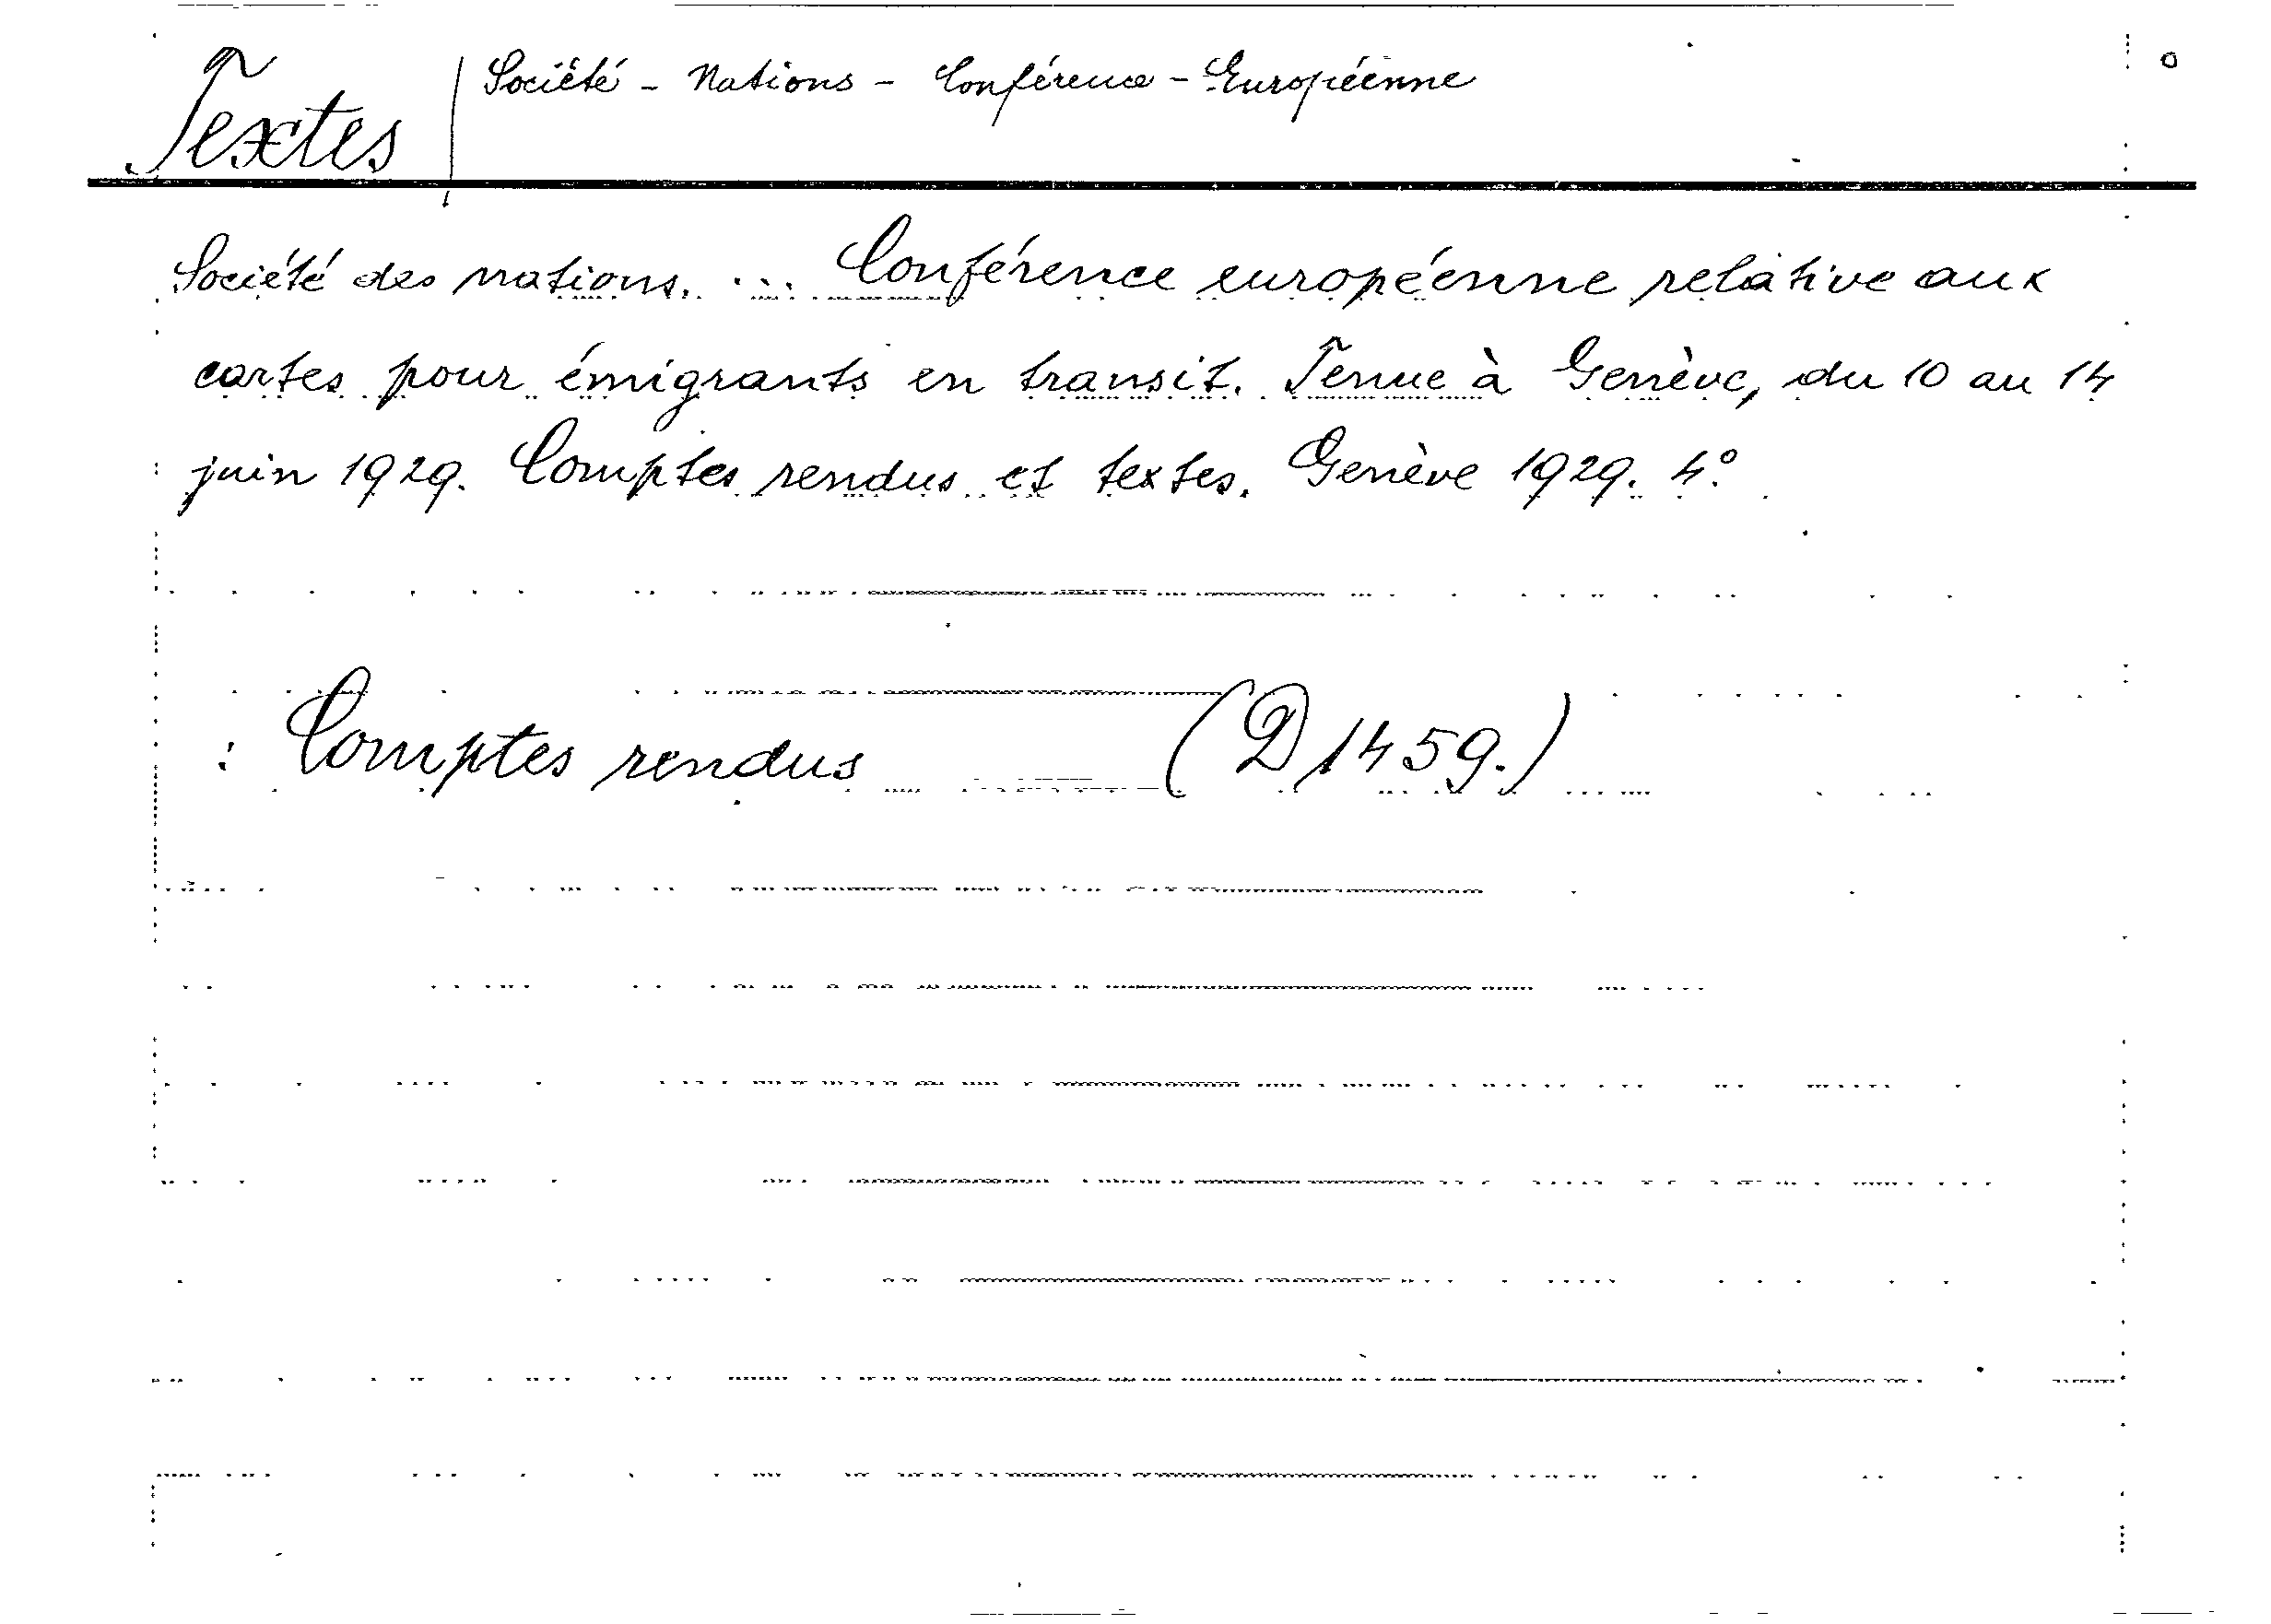 Textes
Société - Nations - Conférence - Européenne
Société des nations. ... Conférence européenne relative aux
cartes pour émigrants en transit. Tenue à Genève, du 10 au 14
juin 1929. Comptes rendus et textes. Genève 1929. 4°
: Comptes rendus (D 1459.)